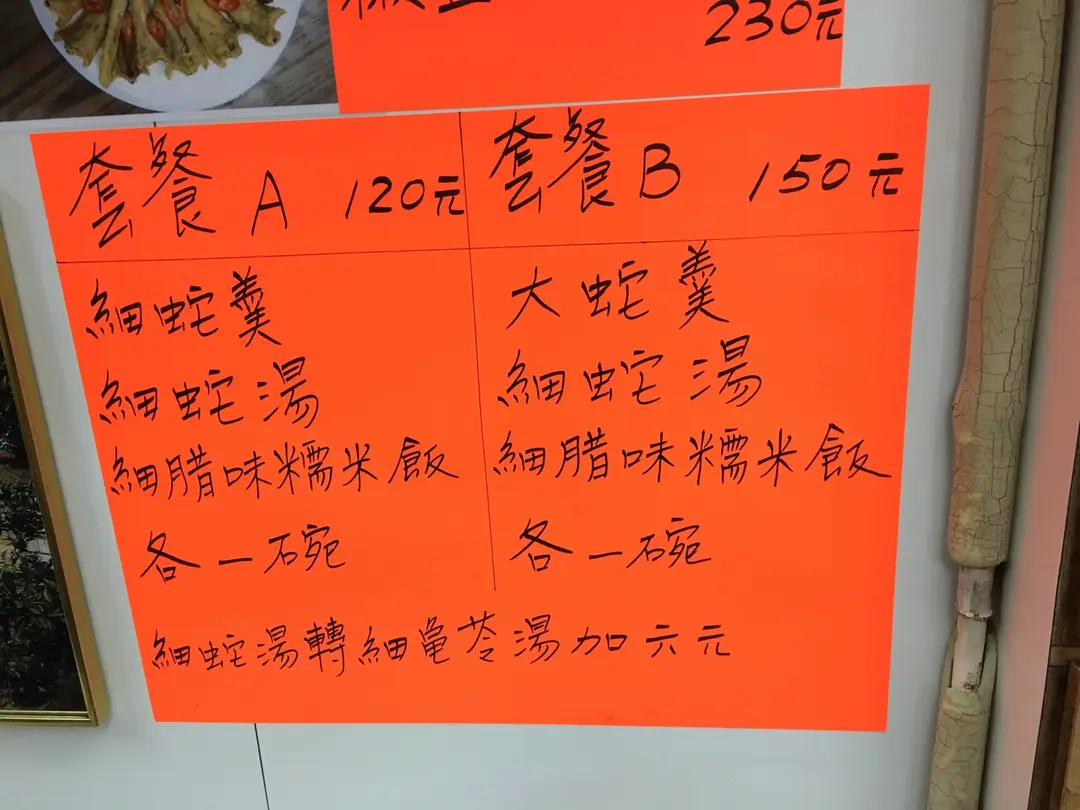 230元
套餐 A 120元
細蛇羹
細蛇湯
細腊味糯米飯
各一碗
套餐 B 150元
大蛇羹
細蛇湯
細腊味糯米飯
各一碗
細蛇湯轉細龜苓湯加六元